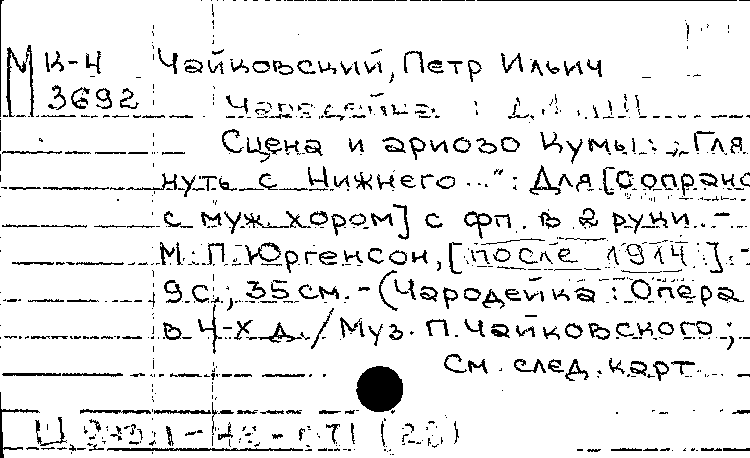 М К-4 Чайковский, Петр Ильич
3692 Чародейка :
Сцена и ариозо Кумы: „Гля
нуть с Нижнего...": Для [сопрано
с муж. хором] с фп. в 2 руки. -
М.: П. Юргенсон, [после 1914]. -
9 с.; 35 см. - (Чародейка : Опера
в 4-х д. / Муз. П. Чайковского;
См. след. карт